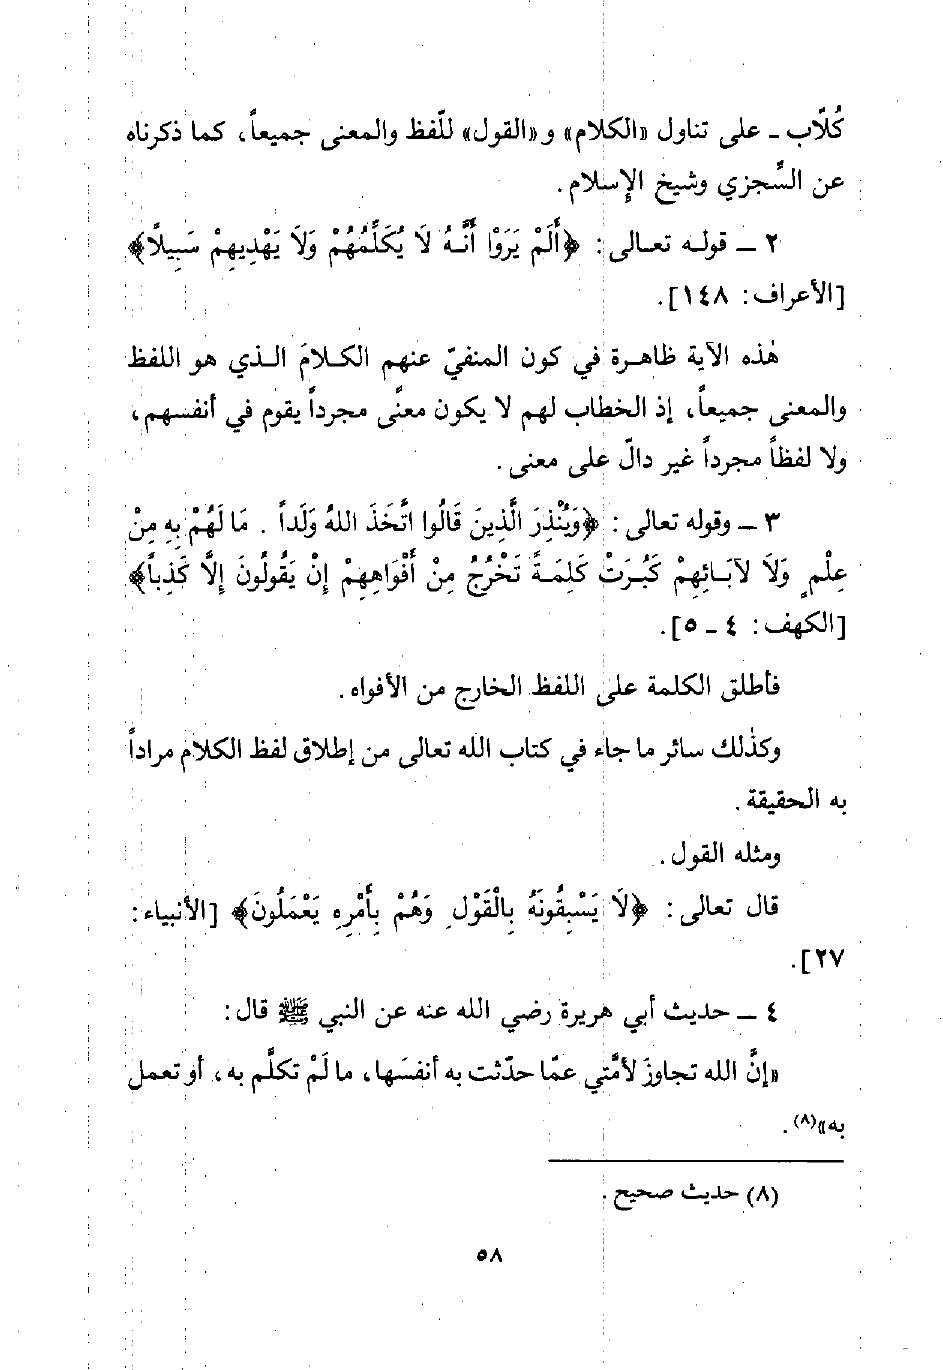 كُلّاب ـ على تناول «الكلام» و«القول» للّفظ والمعنى جميعاً، كما ذكرناه
عن السِّجزي وشيخ الإسلام.
٢ ـ قوله تعالى: ﴿أَلَمْ يَرَوْا أَنَّهُ لَا يُكَلِّمُهُمْ وَلَا يَهْدِيهِمْ سَبِيلًا﴾
[الأعراف: ١٤٨].
هٰذه الآية ظاهرة في كون المنفيّ عنهم الكلامَ الذي هو اللفظ
والمعنى جميعاً، إذ الخطاب لهم لا يكون معنًى مجرداً يقوم في أنفسهم،
ولا لفظاً مجرداً غير دالّ على معنى.
٣ ـ وقوله تعالى: ﴿وَيُنْذِرَ الَّذِينَ قَالُوا اتَّخَذَ اللهُ وَلَداً . مَا لَهُمْ بِهِ مِنْ
عِلْمٍ وَلَا لآبَائِهِمْ كَبُرَتْ كَلِمَةً تَخْرُجُ مِنْ أَفْوَاهِهِمْ إِنْ يَقُولُونَ إِلَّا كَذِباً﴾
[الكهف: ٤ ـ ٥].
فأطلق الكلمة على اللفظ الخارج من الأفواه.
وكذٰلك سائر ما جاء في كتاب الله تعالى من إطلاق لفظ الكلام مراداً
به الحقيقة.
ومثله القول.
قال تعالى: ﴿لَا يَسْبِقُونَهُ بِالْقَوْلِ وَهُمْ بِأَمْرِهِ يَعْمَلُونَ﴾ [الأنبياء:
٢٧].
٤ ـ حديث أبي هريرة رضي الله عنه عن النبي ﷺ قال:
«إنَّ الله تجاوزَ لأمَّتي عمّا حدّثت به أنفسَها، ما لَمْ تكلَّم به، أو تعمل
به»(٨).
(٨) حديث صحيح.
٥٨